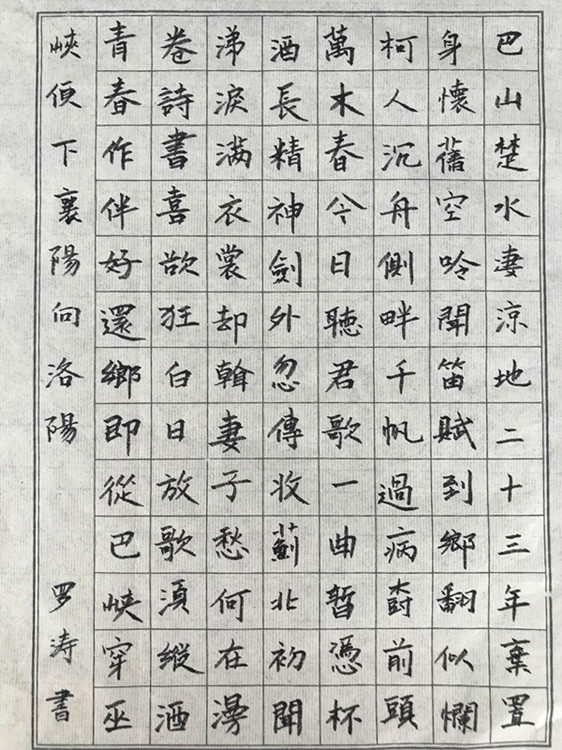 巴山楚水凄涼地二十三年棄置
身懷舊空吟聞笛賦到鄉翻似爛
柯人沉舟側畔千帆過病樹前頭
萬木春今日聽君歌一曲暫憑杯
酒長精神劍外忽傳收薊北初聞
涕淚满衣裳却看妻子愁何在漫
卷詩書喜欲狂白日放歌須縱酒
青春作伴好還鄉即從巴峽穿巫
峽便下襄陽向洛陽
罗涛書